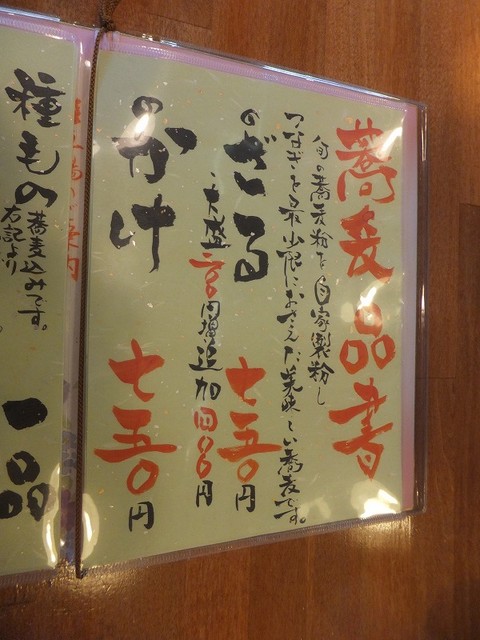 蕎麦品書
旬の蕎麦粉を自家製粉し
つなぎを最小限におさえた美味しい蕎麦です。
のざる 七五〇円
・大盛二〇〇円増 追加四〇〇円
のかけ 七五〇円
種もの 蕎麦込みです。
右記より
一品